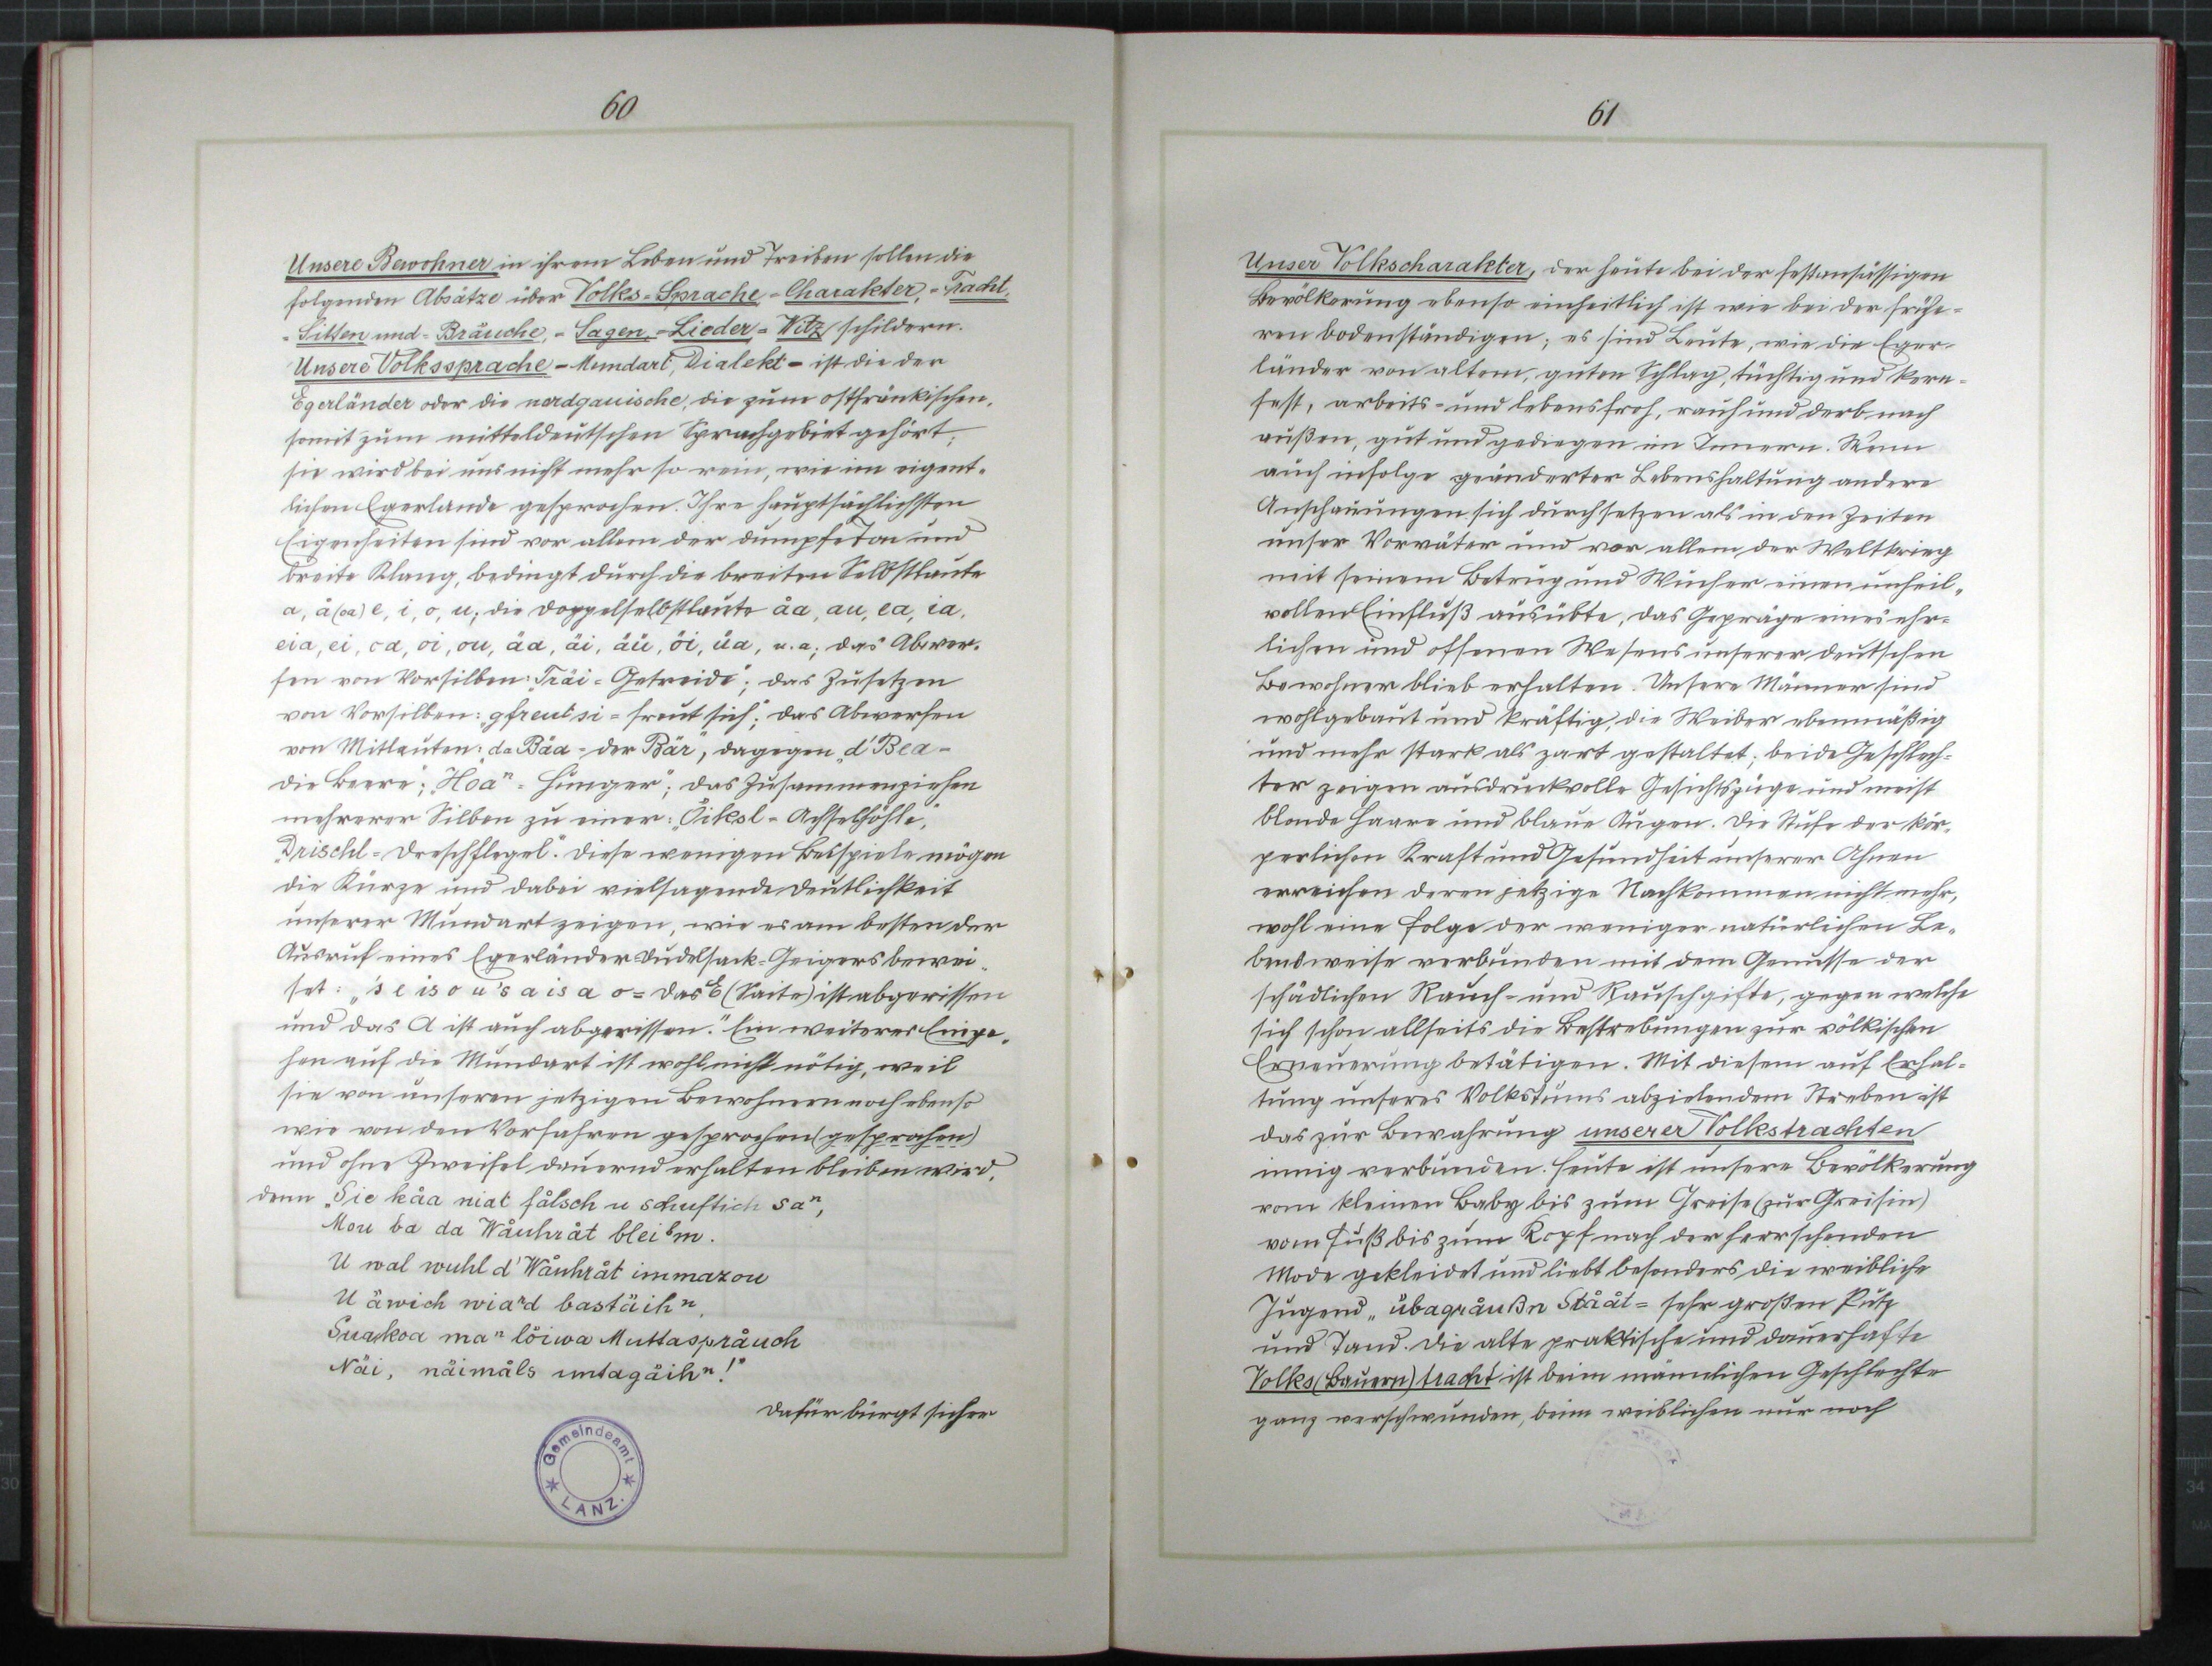 60
Unsere Bewohner in ihrem Leben und Treiben sollen die
folgenden Absätze über Volks=Sprache,=Charakter,=Tracht,
=Sitten und=Bräuche,=Sagen,=Lieder=Witz schildern.
Unsere Volkssprache - Mundart, Dialekt - ist die der
Egerländer oder die nordgauische, die zum ostfränkischen,
somit zum mitteldeutschen Sprachgebiet gehört;
sie wird bei uns nicht mehr so rein, wie im eigent=
lichen Egerlande gesprochen. Ihre hauptsächlichsten
Eigenheiten sind vor allem der dumpfe Ton und
breite Klang, bedingt durch die breiten Selbstlaute
a, å (oa) e, i, o, u, die Doppelselbstlaute åa, au, ea, ia,
eia, ei, oa, oi, ou, äa, äi, äü, öi, üa, u. a.; das Abwer=
fen von Vorsilben: „Träi = Getreide"; das Zusetzen
von Vorsilben: „gfreut si = freut sich"; das Abwerfen
von Mitlauten: „da Bäa = der Bär", dagegen „d' Bea =
die Beere"; „Hoaⁿ = Hunger"; das Zusammenziehen
mehrerer Silben zu einer: „Öiksl = Achselhöhle",
„Drischl = Dreschflegel". Diese wenigen Beispiele mögen
die Kürze und dabei vielsagende Deutlichkeit
unserer Mundart zeigen, wie es am besten der
Ausruf eines Egerländer Dudelsack=Geigers bewei=
set: „'s e is o u 's a is a o = das E (Saite) ist abgerissen
und das A ist auch abgerissen." Ein weiteres Einge=
hen auf die Mundart ist wohl nicht nötig, weil
sie von unseren jetzigen Bewohnern noch ebenso
wie von den Vorfahren gesprochen (gesprochen)
und ohne Zweifel dauernd erhalten bleiben wird,
denn „Sie kåa niat fålsch u schuftich saⁿ,
Mou ba da Wåuhråt bleibm.
U wal wuhl d' Wåuhråt immazou
U äwich wiaʳd bastäihⁿ,
Suakoa maⁿ löiwa Muttaspråuch
Näi, näimåls untagäihⁿ!"
Dafür bürgt sicher
Gemeindeamt
LANZ.
61
Unser Volkscharakter, der heute bei der festansässigen
Bevölkerung ebenso einheitlich ist wie bei der frühe=
ren bodenständigen; es sind Leute, wie die Eger=
länder von altem, guten Schlag, tüchtig und kern=
fest, arbeits= und lebensfroh, rauh und derb nach
außen, gut und gediegen im Innern. Wenn
auch infolge geänderter Lebenshaltung andere
Anschauungen sich durchsetzen als in den Zeiten
unser Vorväter und vor allem der Weltkrieg
mit seinem Betrug und Wucher einen unheil=
vollen Einfluß ausübte, das Gepräge eines ehr=
lichen und offenen Wesens unserer deutschen
Bewohner blieb erhalten. Unsere Männer sind
wohlgebaut und kräftig, die Weiber ebenmäßig
und mehr stark als zart gestaltet; beide Geschlech=
ter zeigen ausdruckvolle Gesichtszüge und meist
blonde Haare und blaue Augen. Die Stufe der kör=
perlichen Kraft und Gesundheit unserer Ahnen
erreichen deren jetzige Nachkommen nicht mehr,
wohl eine Folge der weniger natürlichen Le=
bensweise verbunden mit dem Genusse der
schädlichen Rauch= und Rauschgifte, gegen welche
sich schon allseits die Bestrebungen zur völkischen
Erneuerung betätigen. Mit diesem auf Erhal=
tung unseres Volkstums abzielendem Streben ist
das zur Bewahrung unserer Volkstrachten
innig verbunden. Heute ist unsere Bevölkerung
vom kleinen Baby bis zum Greise (zur Greisin)
vom Fuß bis zum Kopf nach der herrschenden
Mode gekleidet und liebt besonders die weibliche
Jugend „übagråußn Stååt = sehr großen Putz
und Tand. Die alte praktische und dauerhafte
Volks(Bauern)tracht ist beim männlichen Geschlechte
ganz verschwunden, beim weiblichen nur noch